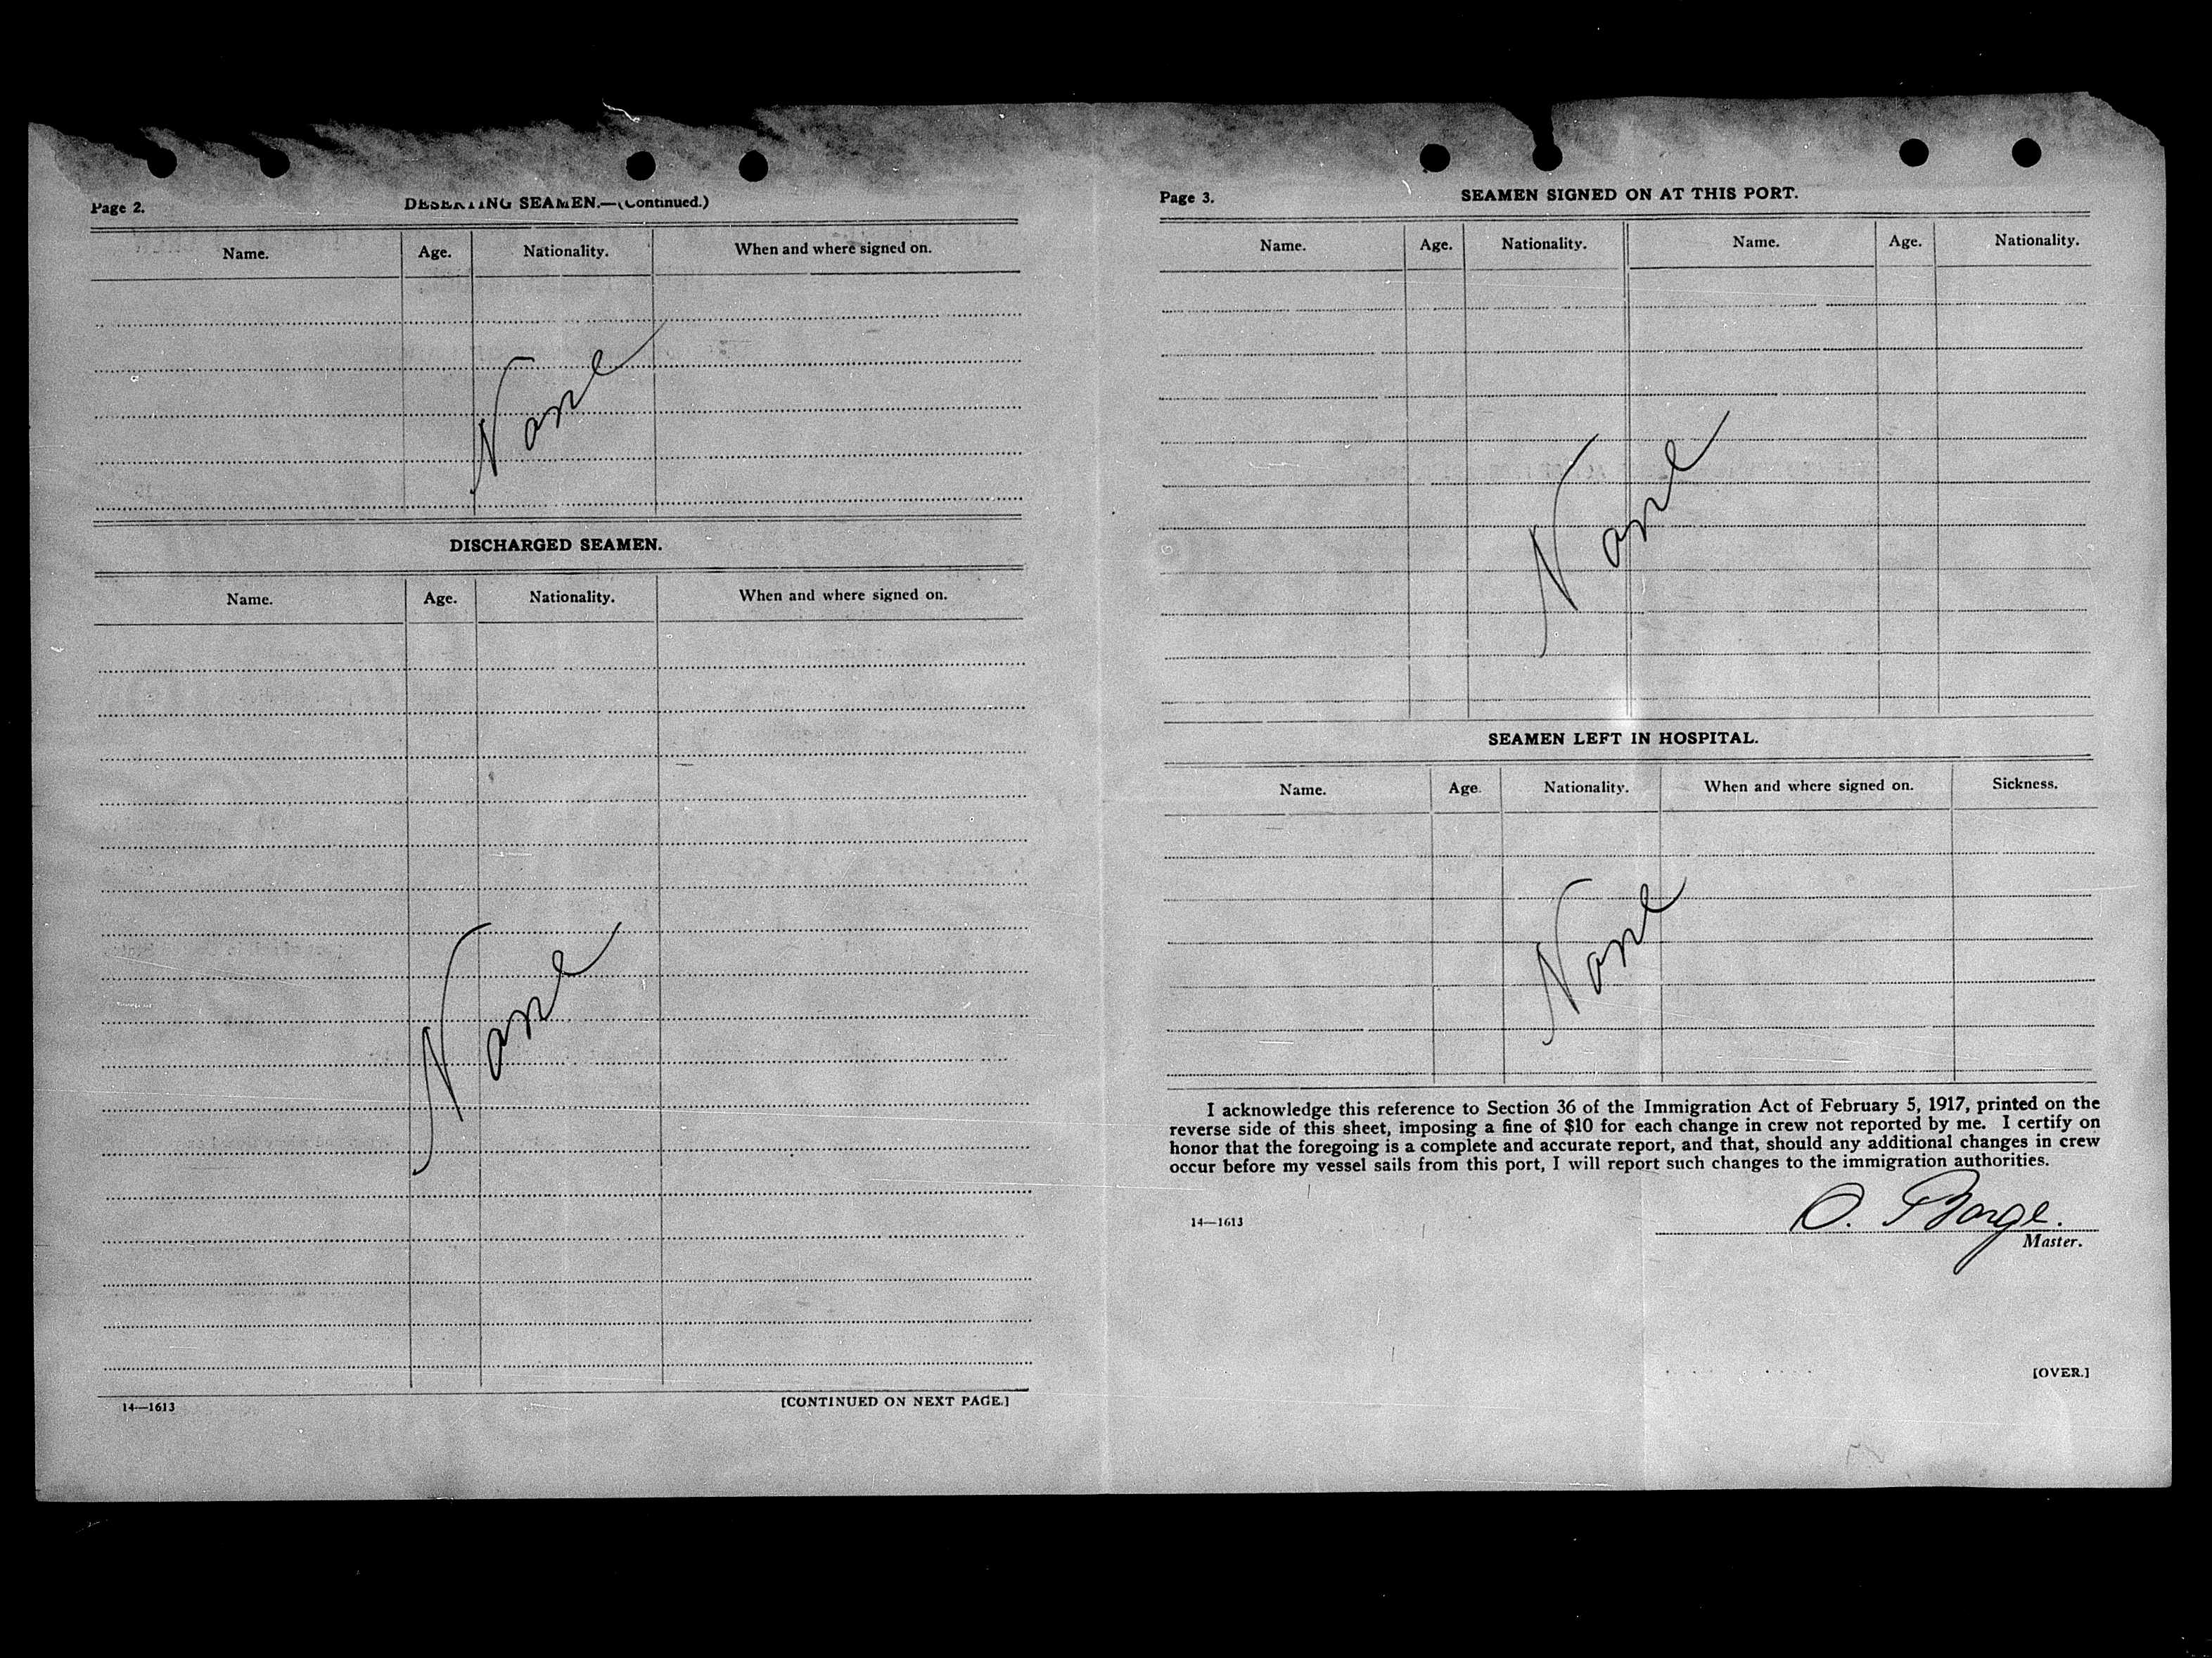 Page 2.
DESERTING SEAMEN.—(Continued.)
Name. Age. Nationality. When and where signed on.
None
DISCHARGED SEAMEN.
Name. Age. Nationality. When and where signed on.
None
14—1613 [CONTINUED ON NEXT PAGE.]
Page 3.
SEAMEN SIGNED ON AT THIS PORT.
Name. Age. Nationality. Name. Age. Nationality.
None
SEAMEN LEFT IN HOSPITAL.
Name. Age. Nationality. When and where signed on. Sickness.
None
I acknowledge this reference to Section 36 of the Immigration Act of February 5, 1917, printed on the
reverse side of this sheet, imposing a fine of $10 for each change in crew not reported by me. I certify on
honor that the foregoing is a complete and accurate report, and that, should any additional changes in crew
occur before my vessel sails from this port, I will report such changes to the immigration authorities.
O. Borge.
14—1613
Master.
[OVER.]